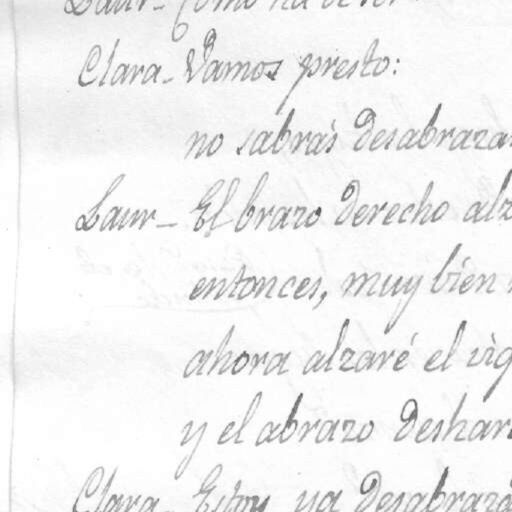 Laur- Como ha de ser
Clara- Vamos presto:
no sabràs desabraza
Laur- El brazo derecho alz
entonces, muy bien
ahora alzaré el viq
y el abrazo deshar
Clara- Estoy ya desabraza